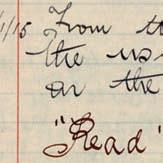 1/15 From to
the us
on the
"Read"